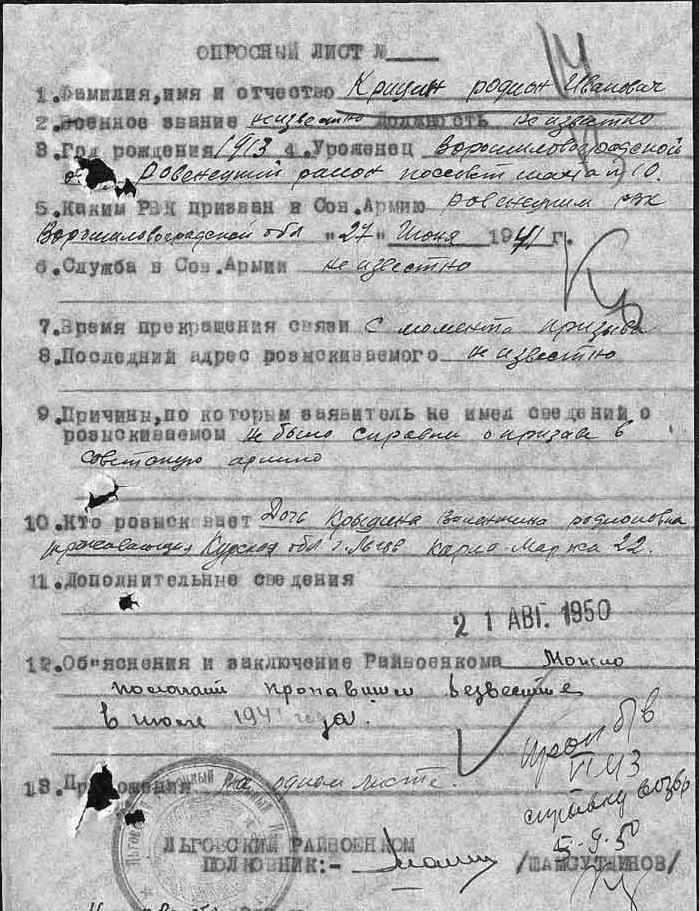 ОПРОСНЫЙ ЛИСТ №
1.Фамилия,имя и отчество Крицин родион Иванович
2.Военное звание неизвестно Должность не известно
3.Год рождения 1913 4.Уроженец Ворошиловоградской
Ровенецкий район поссвет шахта N 10.
5.Каким РВК призван в Сов.Армию Ровенецким РВК
Ворошиловоградской обл "27" Июня 1941 г.
6.Служба в Сов.Армии не известно
7.Время прекращения связи С момента призыва
8.Последний адрес розыскиваемого не известно
9.Причины,по которым заявитель не имел сведений о
розыскиваемом не было справки о призыве в
советскую армию
10.Кто розыскивает Дочь Валентина родионовна
Курская обл г.Льгов Карла-Маркса 22.
11.Дополнительные сведения
21 АВГ. 1950
12.Об"яснения и заключение Райвоенкома Можно
пропавшим безвестие
в июле 1941 года.
13.Приложения на одном листе.
проп б/в
справку возвр
5-9-50
ЛЬГОВСКИЙ РАЙВОЕНКОМ
ПОЛКОВНИК:- /ШАЙСУТДИНОВ/